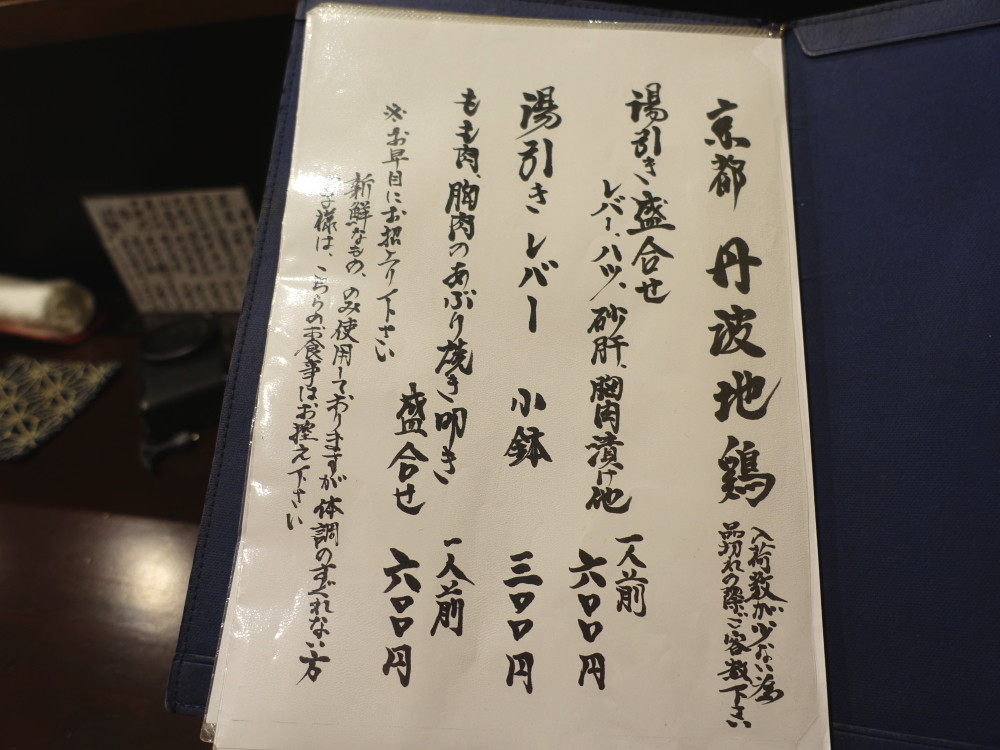 京都 丹波地鶏
入荷数が少ない為
品切れの際ご容赦下さい
湯引き盛合せ
レバー、ハツ、砂肝、胸肉漬け他
一人前
六〇〇円
湯引きレバー 小鉢 三〇〇円
もも肉、胸肉のあぶり焼き叩き
盛合せ
一人前
六〇〇円
※お早目にお召上り下さい
新鮮なもの、のみ使用しておりますが体調のすぐれない方
様は、こちらのお食事はお控え下さい